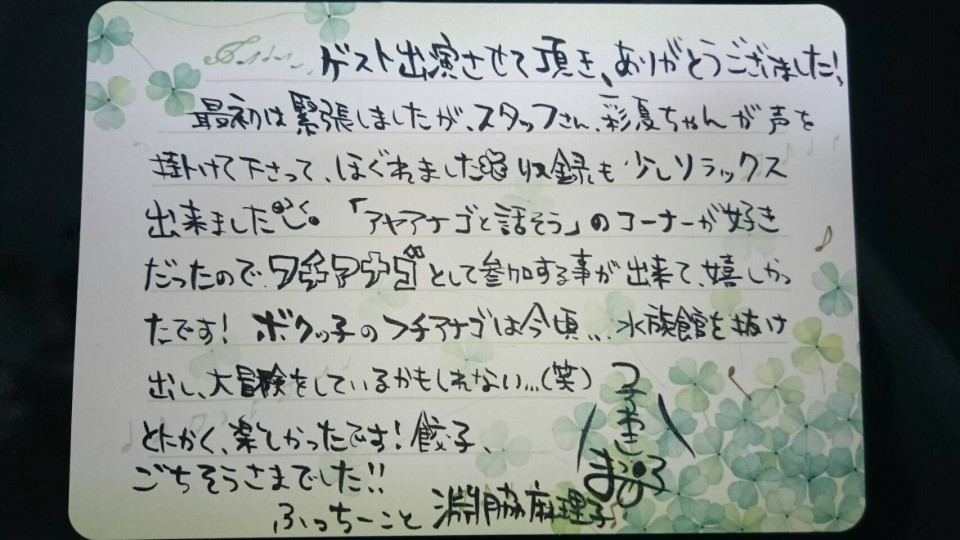 ゲスト出演させて頂き、ありがとうございました!
最初は緊張しましたが、スタッフさん、彩夏ちゃんが声を
掛けて下さって、ほぐれました 収録も少しリラックス
出来ました 「アヤアナゴと話そう」のコーナーが好き
だったので、フチアナゴとして参加する事が出来て、嬉しかっ
たです! ボクッ子のフチアナゴは今頃... 水族館を抜け
出し、大冒険をしているかもしれない...(笑)
とにかく、楽しかったです!餃子、
ごちそうさまでした!!
ふっちーこと 淵脇麻理子